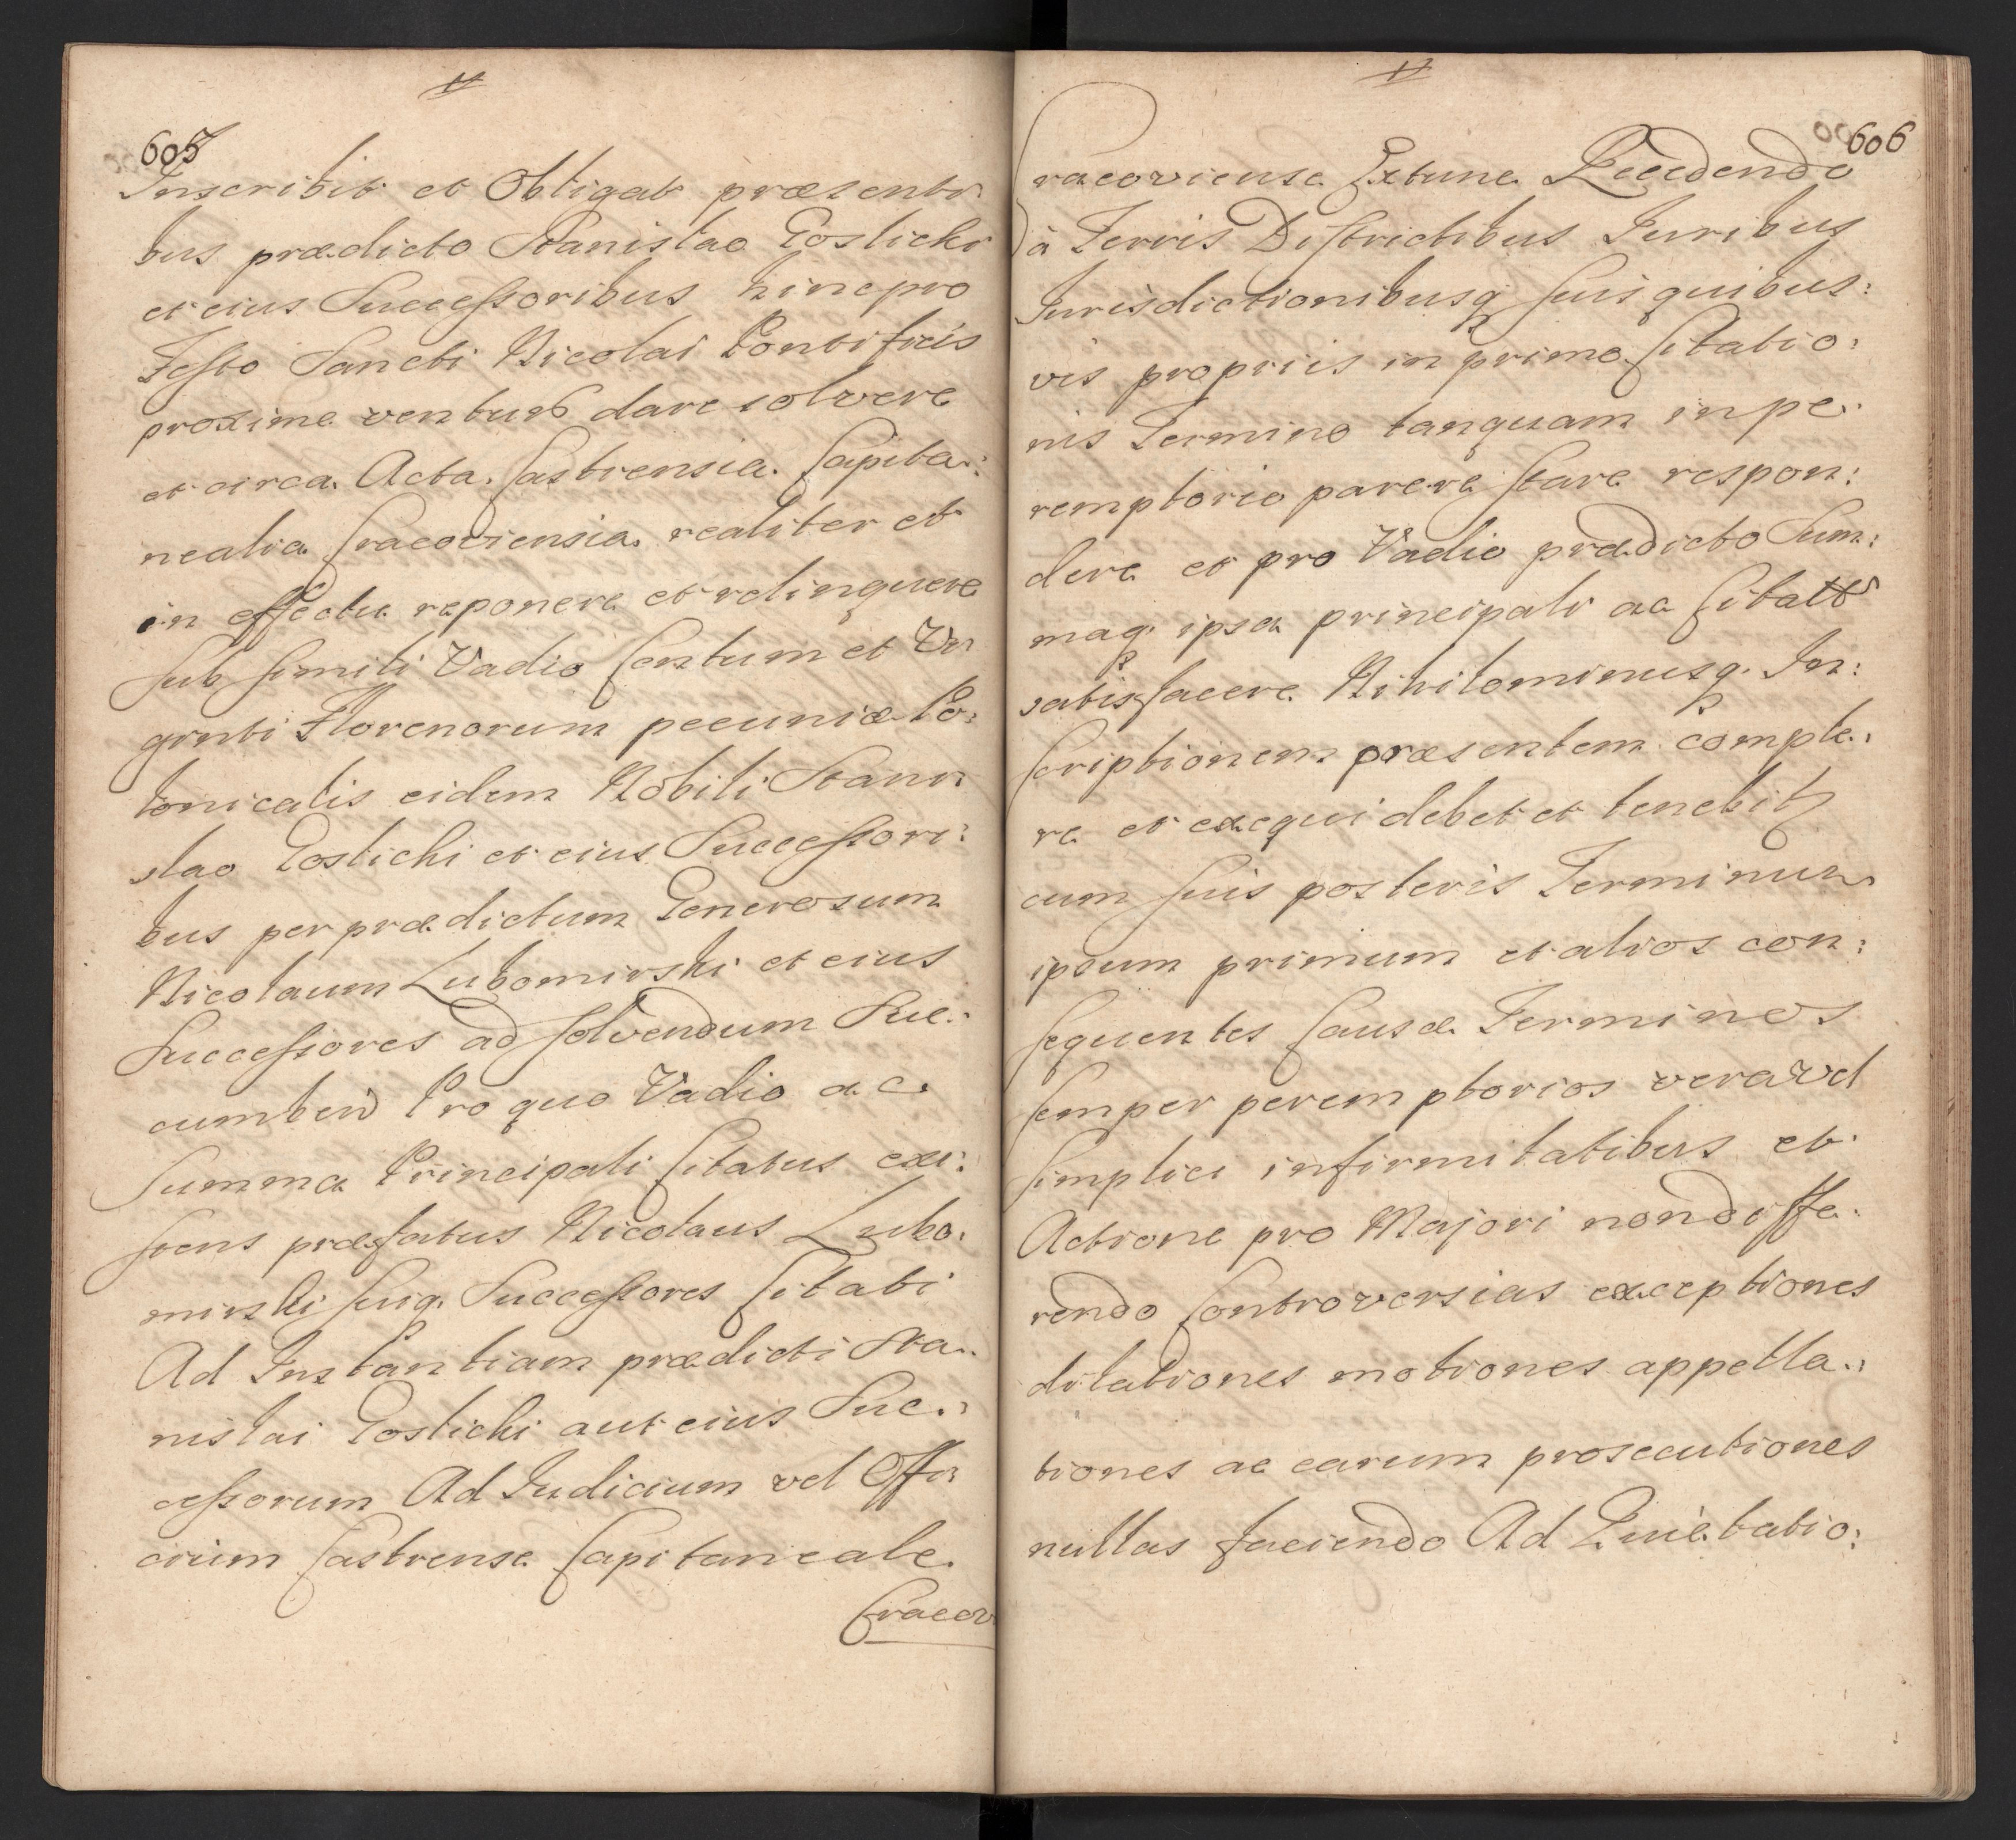 605
Inscribit et Obligat præsenti:
bus prædicto Stanislao Goslicki
et eius Successoribus hinc pro
Festo Sancti Nicolai Pontificis
proxime venturo dare solvere
et circa Acta Castrensia Capita:
nealia Cracoviensia realiter et
in effectu reponere et relinquere
sub simili Vadio Centum et Vi
ginti Florenorum pecuniæ Po:
lonicalis eidem Nobili Stani
slao Goslicki et eius Successori:
bus per prædictum Generosum
Nicolaum Lubomirski et eius
Successores ad solvendum Suc:
cumben Pro quo Vadio ac
Summa Principali Citatus exi:
stens præfatus Nicolaus Lubo:
mirski suiq. Successores Citati
Ad Instantiam prædicti Sta:
nislai Goslicki aut eius Suc:
cessorum Ad Iudicium vel Offi
cium Castrense Capitaneale
Cracov
606
Cracoviense Extunc Recedendo
à Terris Districtibus Iuribus
Iurisdictionibusq suis quibus:
vis propriis in primo Citatio:
nis Termino tanquam in pe:
remptorio parere stare respon:
dere et pro Vadio prædicto Sum:
maq. ipsa principali ac Citatt
satisfacere Nihilominusq. In:
scriptionem præsentem comple:
re et exequi debet et tenebit
cum suis posteris Terminum
ipsum primum et alios con:
sequentes Causæ Terminos
semper peremptorios vera vel
simplici infirmitatibus et
Actione pro Majori non diffe:
rendo Controversias exceptiones
dilationes motiones appella:
tiones ac earum prosecutiones
nullas faciendo Ad Quietatio: